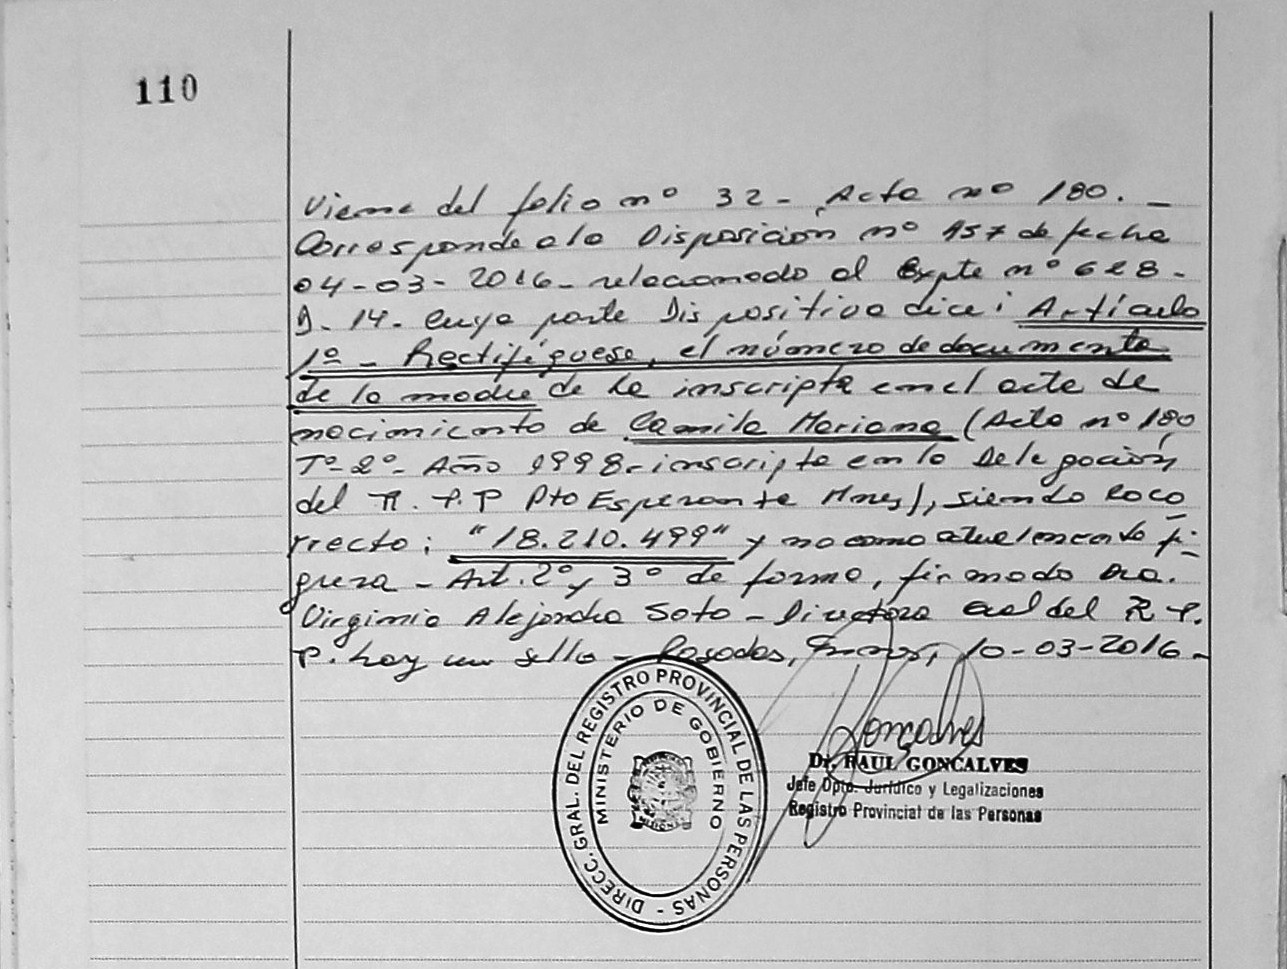 110
Viene del folio nº 32 - Acta nº 180. -
Corresponde a la Disposición nº 457 de fecha
04-03-2016 - relacionado al Expte nº 628 -
D. 14. cuya parte Dispositiva dice: Artículo
1º - Rectifíquese, el número de documento
de la madre de la inscripta en el acta de
nacimiento de Camila Mariana (Acta nº 180
Tº 2º - Año 1998 - inscripta en la Delegación
del R. P. P Pto Esperanza Mnes), siendo lo co
rrecto: "18.210.499" y no como actualmente fi-
gura - Art. 2º y 3º de forma, firmado Dra.
Virginia Alejandra Soto - Directora Gral del R. P.
P. hay un sello - Posadas, Mnes, 10-03-2016 -
DIRECC. GRAL. DEL REGISTRO PROVINCIAL DE LAS PERSONAS -
MINISTERIO DE GOBIERNO
MISIONES
Goncalves
Dr. RAUL GONCALVES
Jefe Dpto. Jurídico y Legalizaciones
Registro Provincial de las Personas